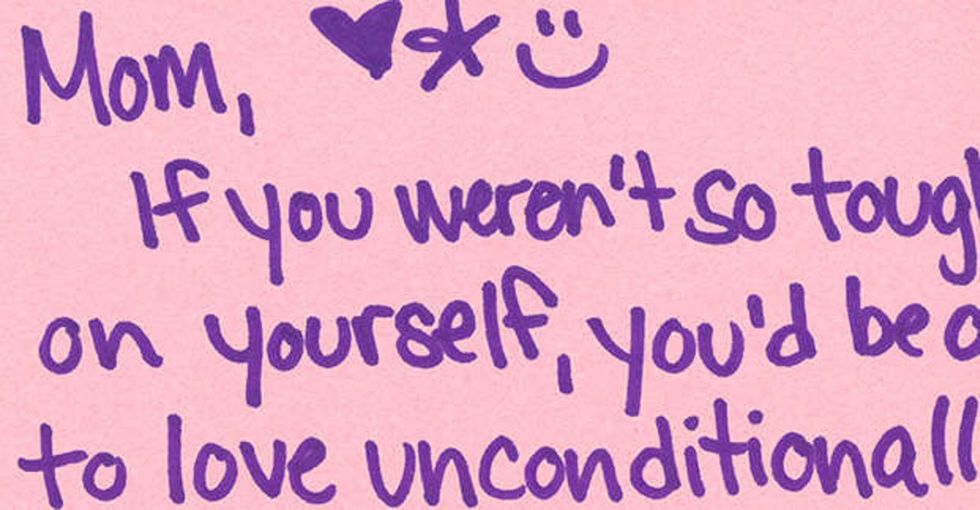 Mom,
If you weren't so toug
on yourself, you'd be
to love unconditionall